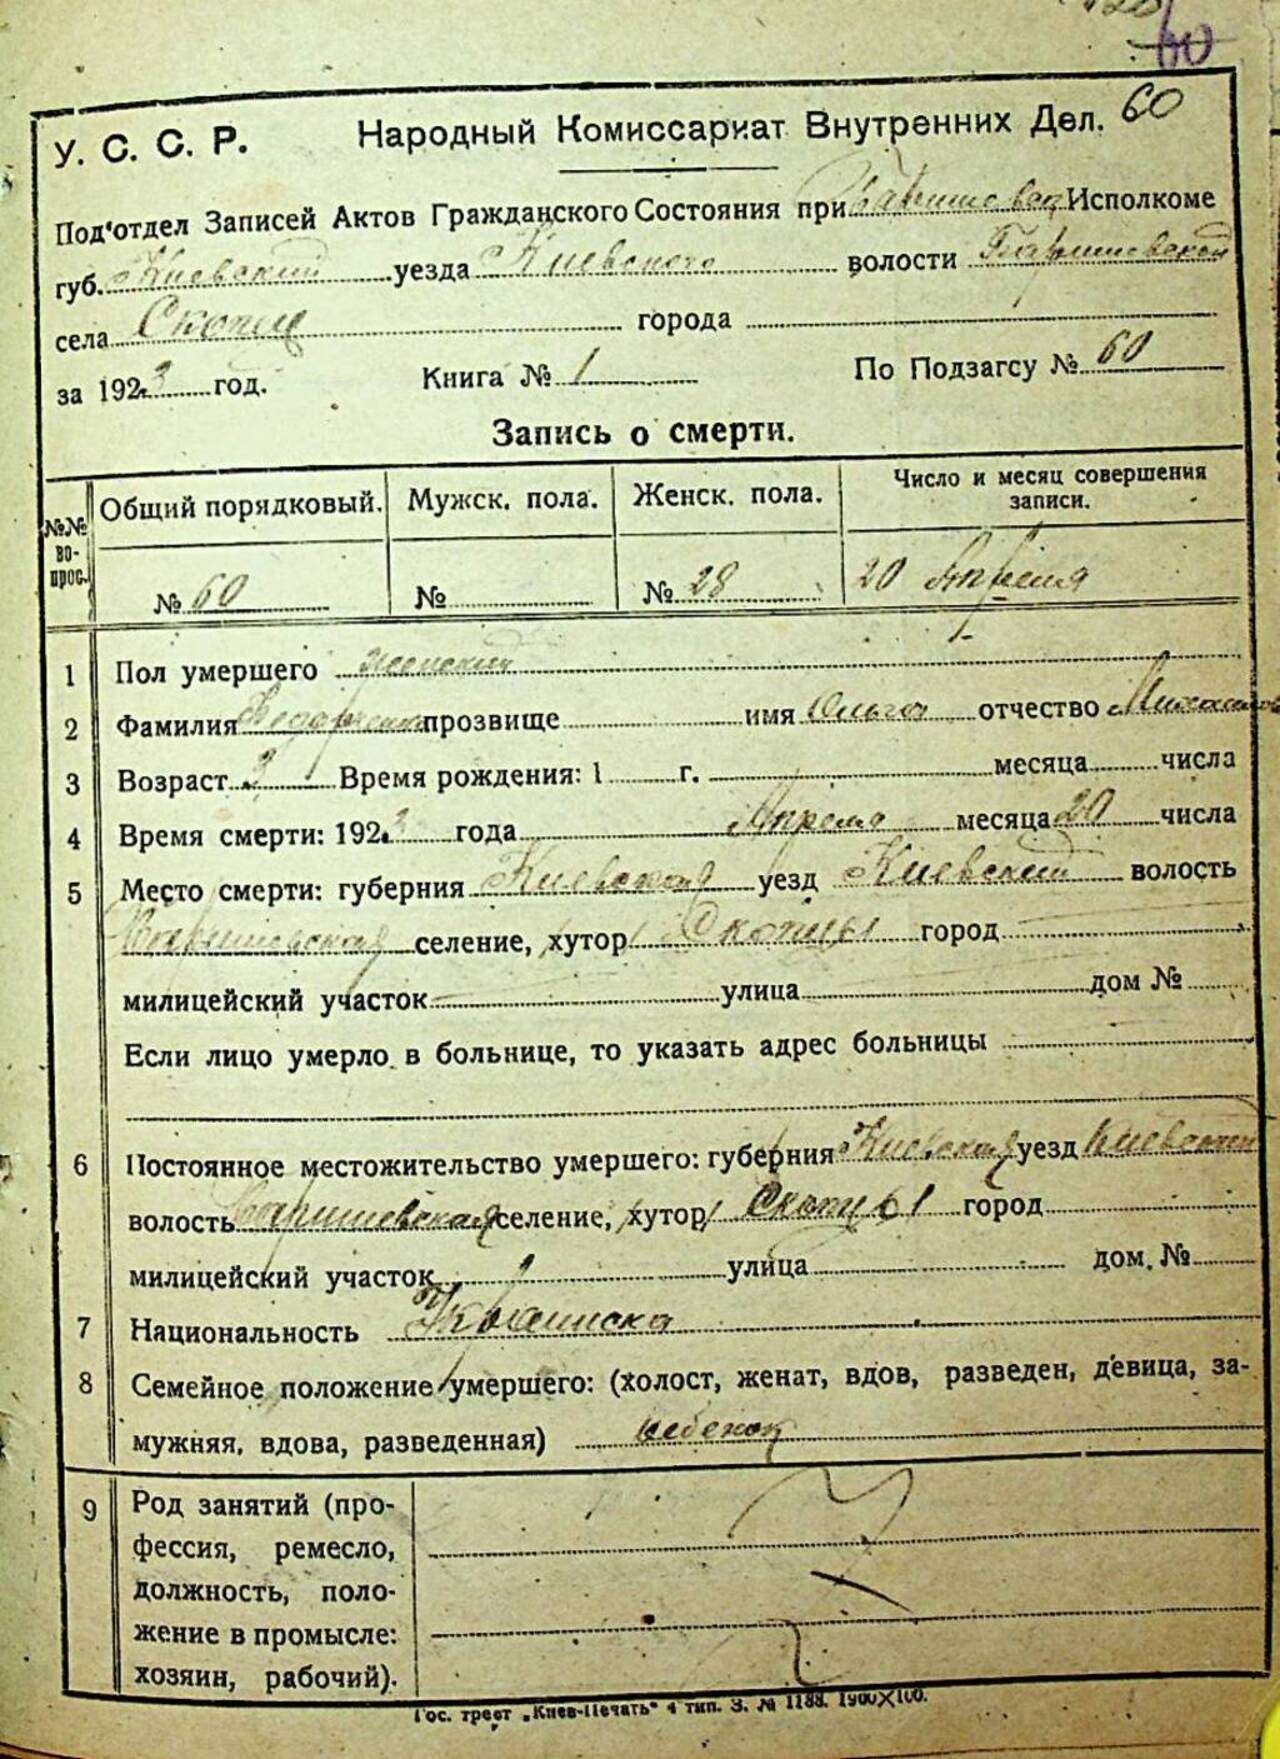 60
У. С. С. Р. Народный Комиссариат Внутренних Дел. 60
Под'отдел Записей Актов Гражданского Состояния при Исполкоме
губ. Киевский уезда Киевского волости Барышевской
села Скопце города
за 1923 год. Книга № 1 По Подзагсу № 60
Запись о смерти.
№№ вопрос. Общий порядковый. Мужск. пола. Женск. пола. Число и месяц совершения записи.
№ 60 № № 28 20 Апреля
1 Пол умершего женский
2 Фамилия прозвище имя Ольга отчество
3 Возраст Время рождения: 1 г. месяца числа
4 Время смерти: 1923 года Апреля месяца 20 числа
5 Место смерти: губерния Киевская уезд Киевский волость
Барышевская селение, хутор Скопцы город
милицейский участок улица дом №
Если лицо умерло в больнице, то указать адрес больницы
6 Постоянное местожительство умершего: губерния Киевская уезд Киевский
волость Барышевская селение, хутор Скопцы город
милицейский участок улица дом. №
7 Национальность Украинска
8 Семейное положение умершего: (холост, женат, вдов, разведен, девица, за-
мужняя, вдова, разведенная) ребенок
9 Род занятий (про-
фессия, ремесло,
должность, поло-
жение в промысле:
хозяин, рабочий).
Гос. трест „Киев-Печать" 4 тип. З. № 1188. 1900×100.